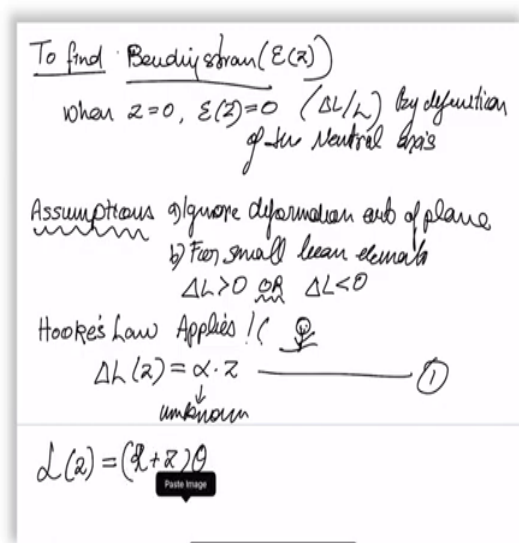 To find Bending strain (ε(z))
when z=0, ε(z)=0 (ΔL/L) by definition
of the Neutral axis
Assumptions a) Ignore deformation out of plane
b) For small beam elements
ΔL>0 OR ΔL<0
Hooke's Law Applies !(
ΔL(z) = α·z ①
↓
unknown
L(z) = (R+z)θ
Paste Image